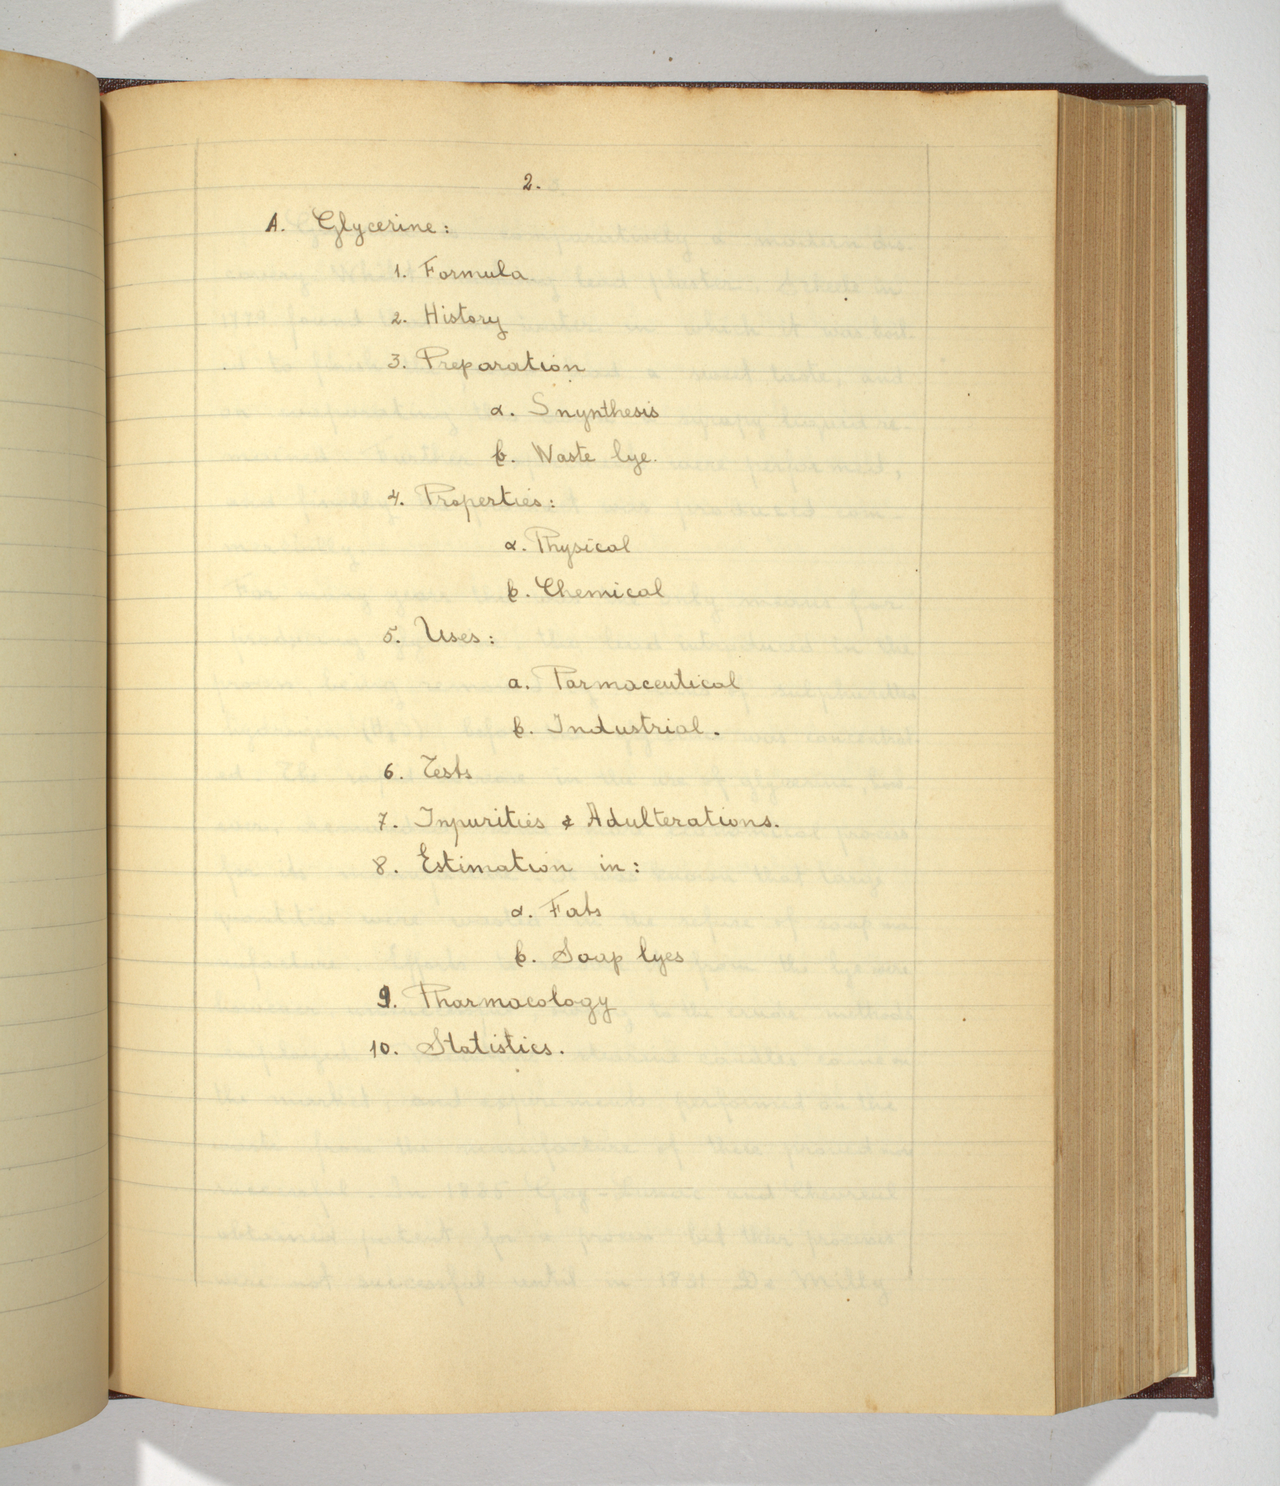 2.
A. Glycerine:
1. Formula
2. History
3. Preparation
a. Snynthesis
b. Waste lye.
4. Properties:
a. Physical
b. Chemical
5. Uses:
a. Parmaceutical
b. Industrial.
6. Tests
7. Inpurities & Adulterations.
8. Estimation in:
a. Fats
b. Soap lyes
9. Pharmacology
10. Statistics.